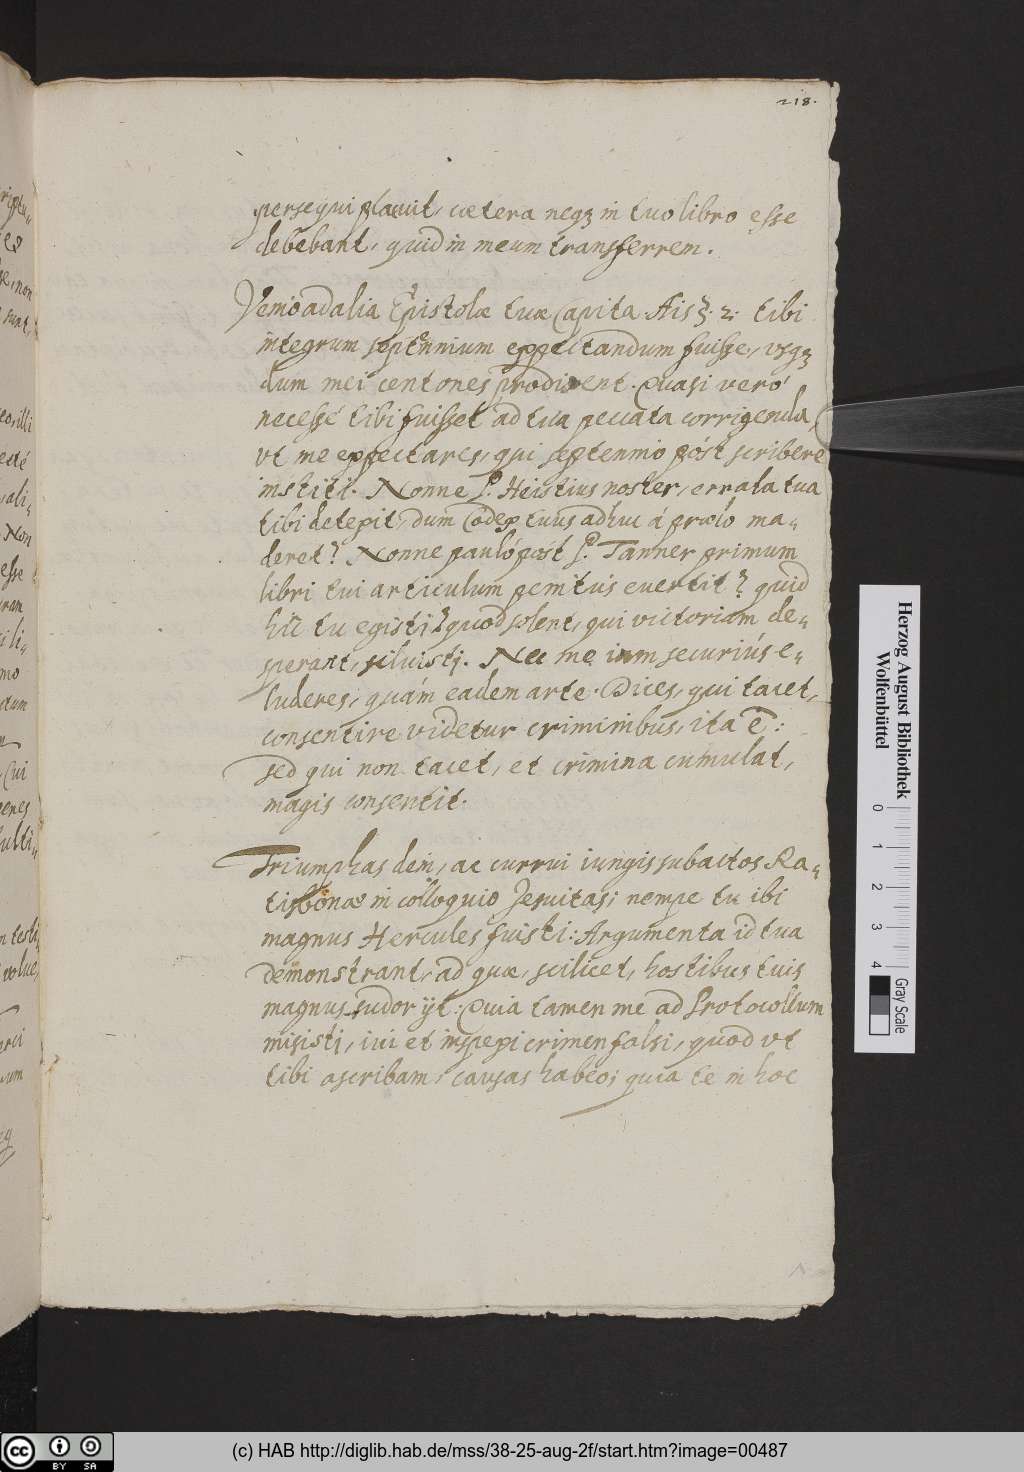 218.
persequi placuit, cætera neqꝫ in tuo libro esse
debebant, quid in meum transferrem.
Venio ad alia Epistolæ tuæ Capita. Aisꝫ. 2. tibi
integrum septennium expectandum fuisse, vsqꝫ
dum mei centones prodirent. Quasi verò
necesse tibi fuisset ad tua peccata corrigenda,
vt me expectares, qui septennio póst scribere
institi. Nonne P. Heistius noster, errata tua
tibi detexit, dum Codex tuus adhuc á prælo ma-
deret? Nonne pauló póst P. Tanner primum
libri tui articulum penitus euertit? quid
hîc tu egisti? quod solent, qui victoriam de-
sperant, siluisti. Nec me iam securiús e-
luderes, quám eadem arte. Dices, qui tacet,
consentire videtur criminibus, ita ē:
sed qui non tacet, et crimina cumulat,
magis consentit.
Triumphas dein, ac currui iungis subactos Ra-
tisbonæ in colloquio Jesuitas; nempe tu ibi
magnus Hercules fuisti: Argumenta id tua
demonstrant, ad quæ, scilicet, hostibus tuis
magnus sudor ijt. Quia tamen me ad Protocollum
misisti, iui et inspexi crimen falsi, quod vt
tibi ascribam, causas habeo; quia te in hoc
Herzog August Bibliothek
Wolfenbüttel
0 1 2 3 4
Gray Scale
cc BY SA
(c) HAB http://diglib.hab.de/mss/38-25-aug-2f/start.htm?image=00487